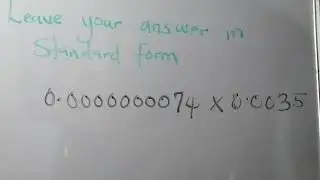 Leave your answer in
Standard form
0.0000000074 x 0.0035